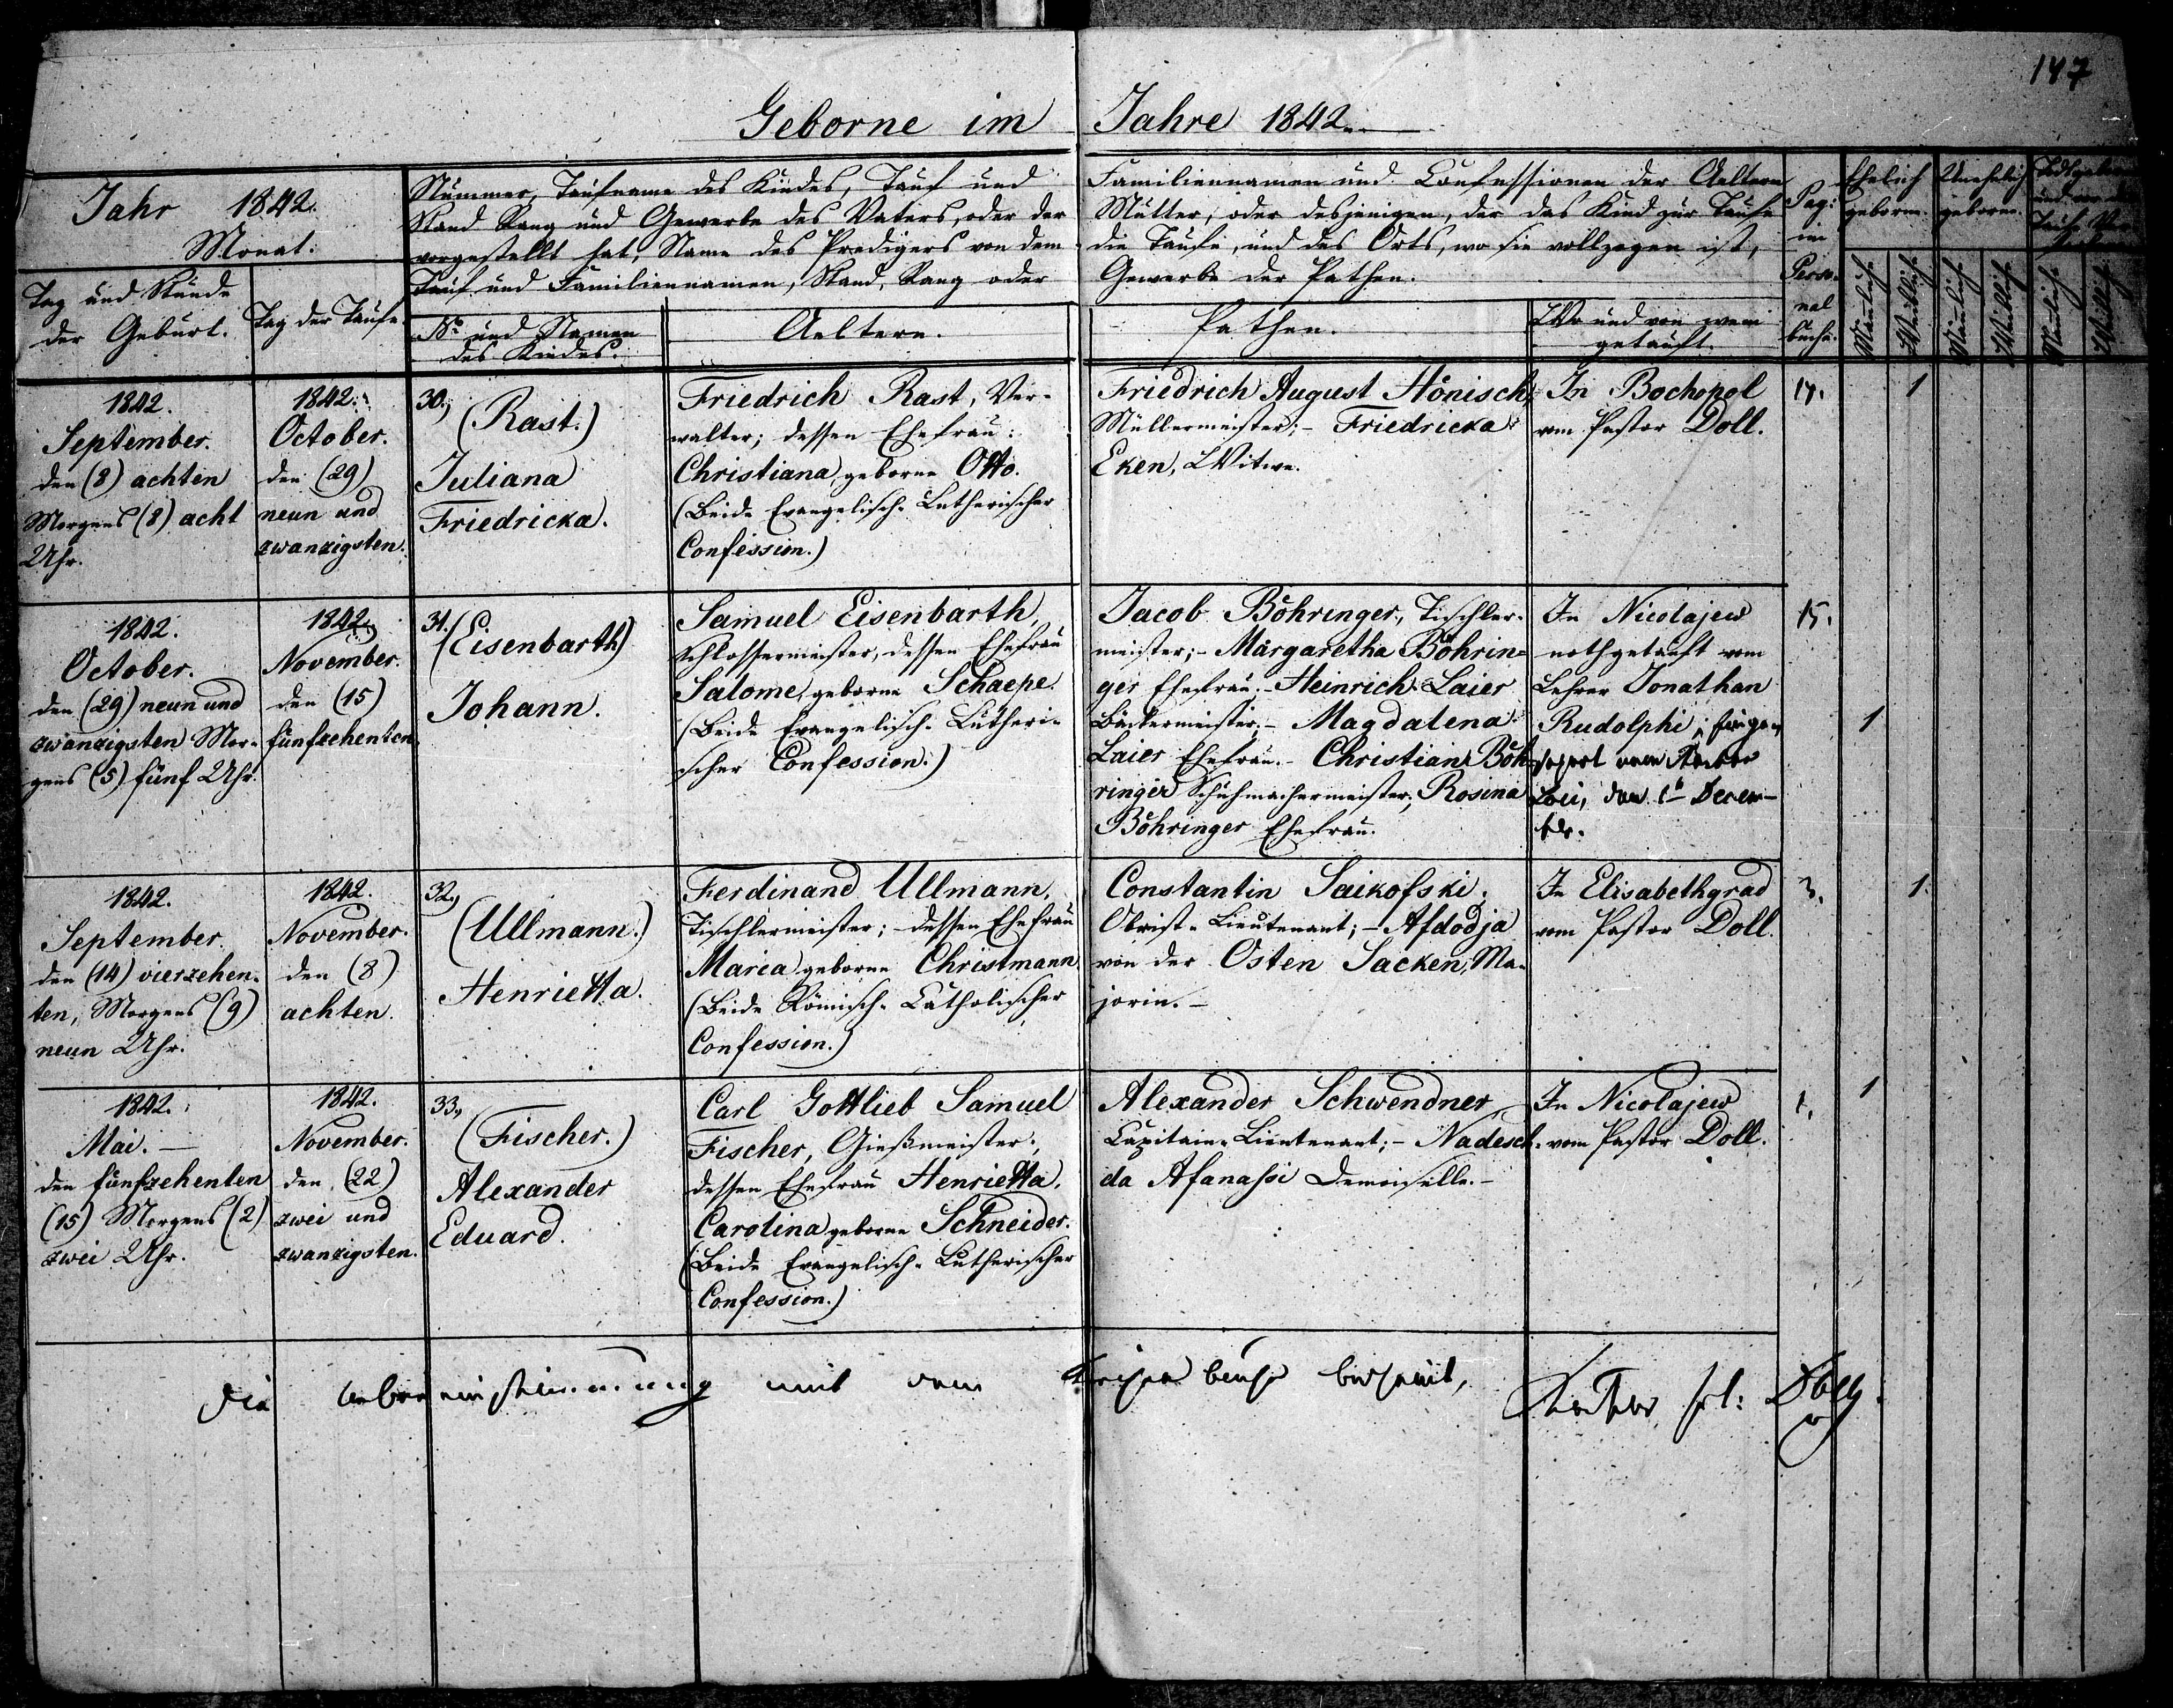 147
Geborne im Jahre 1842.
Jahr 1842.
Monat.
Tag und Stunde
der Geburt.
Tag der Taufe.
Nummer, Taufname des Kindes, Tauf und
Stand Rang und Gewerbe des Vaters, oder der
vorgestellt hat, Name des Predigers von dem
Tauf und Familiennamen, Stand, Rang oder
No und Namen
des Kindes.
Aeltern.
Familiennamen und Confessionen der Aeltern
Mutter, oder desjenigen, der das Kind zur Taufe
die Taufe, und des Orts, wo sie vollzogen ist,
Gewerbe der Pathen.
Pathen.
Wo und von wem
getauft.
Pag:
im
Perso-
nal
buche.
Ehelich
geboren.
Unehelich
geboren.
Männlich
Weiblich
Männlich
Weiblich
Männlich
Weiblich
1842.
September.
den (8) achten
Morgens (8) acht
Uhr.
1842.
October.
den (29)
neun und
zwanzigsten.
30., (Rast.)
Juliana
Friedricka.
Friedrich Rast, Ver-
walter; dessen Ehefrau:
Christiana, geborne Otto.
(Beide Evangelisch-Lutherischer
Confession.)
Friedrich August Hönisch,
Müllermeister; - Friedricka
Eken, Witwe.
In Bochopol
vom Pastor Doll.
14.
1
1842.
October.
den (29) neun und
zwanzigsten Mor-
gens (5) fünf Uhr.
1842.
November.
den (15)
fünfzehenten
31. (Eisenbarth)
Johann.
Samuel Eisenbarth,
Schlossermeister, dessen Ehefrau
Salome, geborne Schaepe.
(Beide Evangelisch-Lutheri-
scher Confession.)
Jacob Böhringer, Tischler-
meister; - Margaretha Böhrin-
ger Ehefrau. - Heinrich Laier
Bäckermeister, - Magdalena
Laier Ehefrau. - Christian Böh-
ringer Schuhmachermeister, Rosina
Böhringer Ehefrau.
In Nicolajew
nothgetauft vom
Lehrer Jonathan
Rudolphi; einge-
segnet vom Pastor
den 6 Decem-
ber.
15.
1
1842.
September.
den (14) vierzehen-
ten, Morgens (9)
neun Uhr.
1842.
November.
den (8)
achten.
32., (Ullmann.)
Henrietta.
Ferdinand Ullmann,
Tischlermeister; dessen Ehefrau
Maria geborne Christmann
(Beide Römisch-Catholischer
Confession.)
Constantin Saikofski,
Obrist-Lieutenant; - Afdodja
von der Osten Sacken, Ma-
jorin. -
In Elisabethgrad
vom Pastor Doll.
3.
1.
1842.
Mai. -
den fünfzehenten
(15) Morgens (2)
zwei Uhr.
1842.
November.
den (22)
zwei und
zwanzigsten.
33., (Fischer.)
Alexander
Eduard.
Carl Gottlieb Samuel
Fischer, Gießmeister;
dessen Ehefrau Henrietta,
Carolina geborne Schneider.
(Beide Evangelisch-Lutherischer
Confession.)
Alexander Schwendner,
Capitain-Lieutenant; - Nadesch-
da Afanassi Demoiselle. -
In Nicolajew
vom Pastor Doll.
1.
1
Die Uebereinstimmung mit dem Kirchenbuche bezeuget,
Pastor Doll.